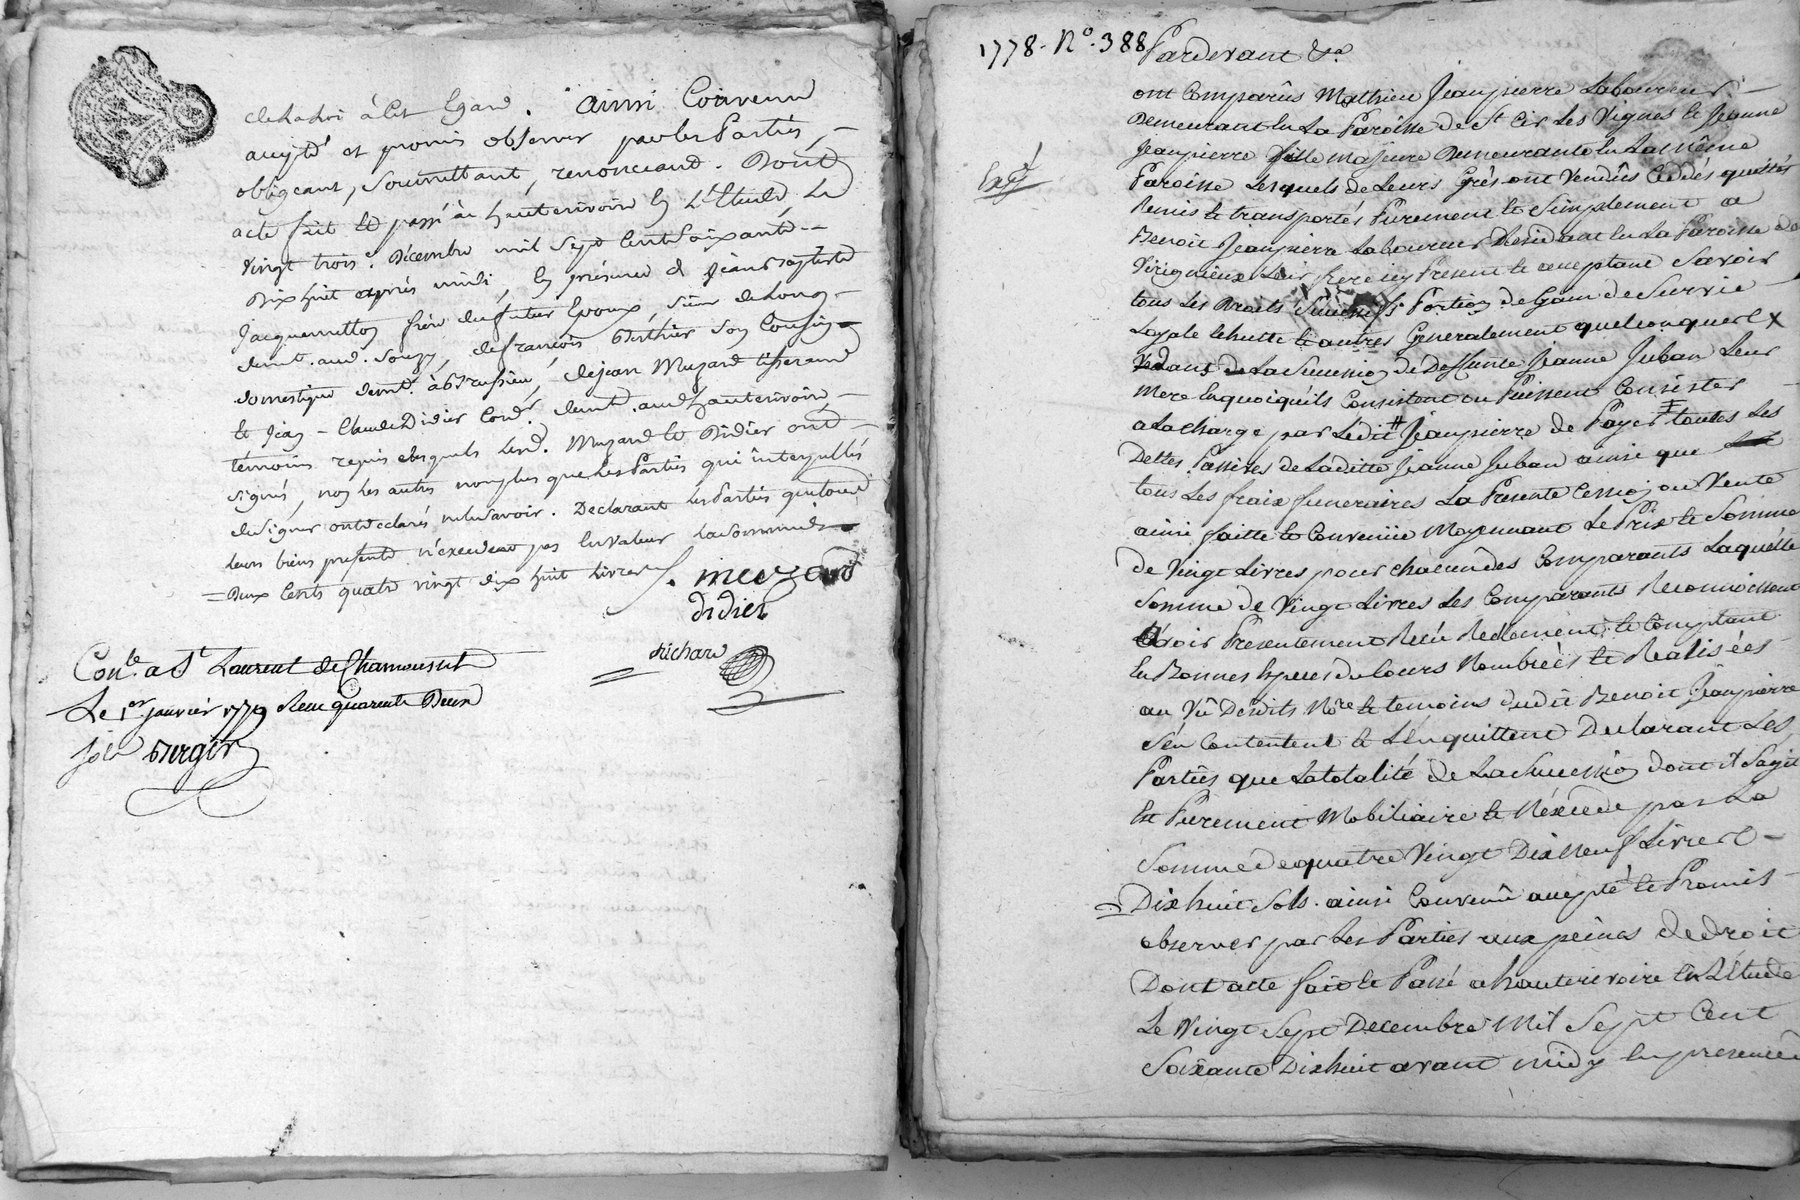 à cet Egard. ainsi Convenu
accepté et promis observer par les Parties,
obligeant, soumettant, renonceant. Dont
acte fait et passé à hauterivoire En L'Etude, Le
vingt trois. Décembre mil sept Cent soixante
Dix huit après midi, En présence de Jean Baptiste
Jacquemetton frère du futur Epoux, de Long
demt. aud. Souzy, de françois Berthier son Cousin
domestique demt. à Brussieu, de jean Muzard tisserand
et Jean Claude Didier Cordr. demt. aud. hauterivoire
témoins requis desquels Led. Muzard et Didier ont
signés, non les autres non plus que Les Parties qui interpellés
de signer ont déclarés ne le savoir. Declarant Les Parties que tous
leurs biens présents n'excedent pas En valeur La somme de
= Deux Cents quatre vingt dix huit Livres
muzard
didier
Richard
Conle. a St. Laurent de Chamousset
Le 1er janvier 1779 Reçu quarante Deux
sols Berger
1778. No. 388 Pardevant &a.
ont Comparûs Mathieu Jeanpierre Laboureur
Demeurant En La Paroisse de St. Cir Les Vignes Et Jeanne
Jeanpierre fille Majeure Demeurante En La Même
Paroisse Lesquels de Leurs Grés ont Vendûs Cédés quittés
Remis Et transportés Purement Et Simplement a
Benoit Jeanpierre Laboureur Residant En La Paroisse de
Virigneux Leur frere icy Present Et acceptant Savoir
tous Les Droits Successifs Portion de Gain de Survie
Layale Chutte Et autres Generalement quelconques Et X
de La Succession de Deffunte Jeanne Juban Leur
Mere En quoi qu'ils Consistent ou Puissent Consister
a La charge par Ledit Jeanpierre de Payer toutes Les
Dettes Passives de Laditte Jeanne Juban ainsi que
tous Les fraix funeraires La Presente Cession ou Vente
ainsi faitte Et Convenüe Moyennant Le Prix Et Somme
de Vingt Livres pour chacun des Comparants Laquelle
Somme de Vingt Livres Les Comparants Reconnoissent
avoir Presentement Reçu Reelement Et Comptant
En Bonnes Especes du Cours Nombrées Et Realisées
au Vû Desdits Nore. Et temoins dudit Benoit Jeanpierre
s'en Contentent Et L'En quittent Declarant Les
Parties que La totalité de La Succession dont il s'agit
Est Purement Mobiliaire Et N'éxcede pas La
Somme de quatre Vingt Dix Neuf Livres
= Dix huit Sols. ainsi Convenû accepté Et Promis
observer par Les Parties aux peines de droit
Dont acte fait Et Passé a hauterivoire En L'Etude
Le Vingt Sept Decembre Mil Sept Cent
Soixante Dix huit avant midy En presence de